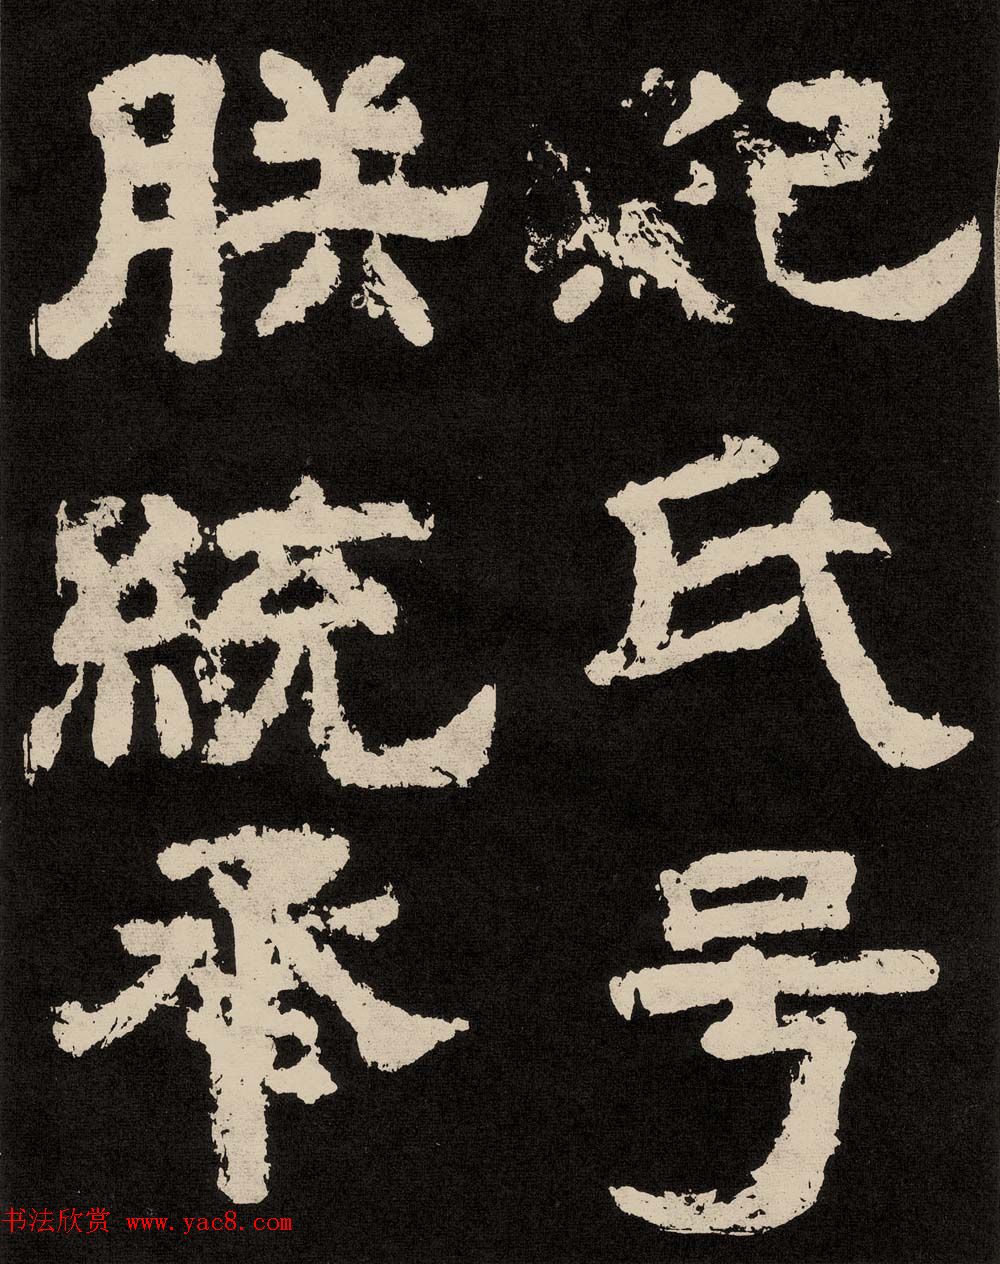 紀氏号
朕統承
书法欣赏 www.yac8.com